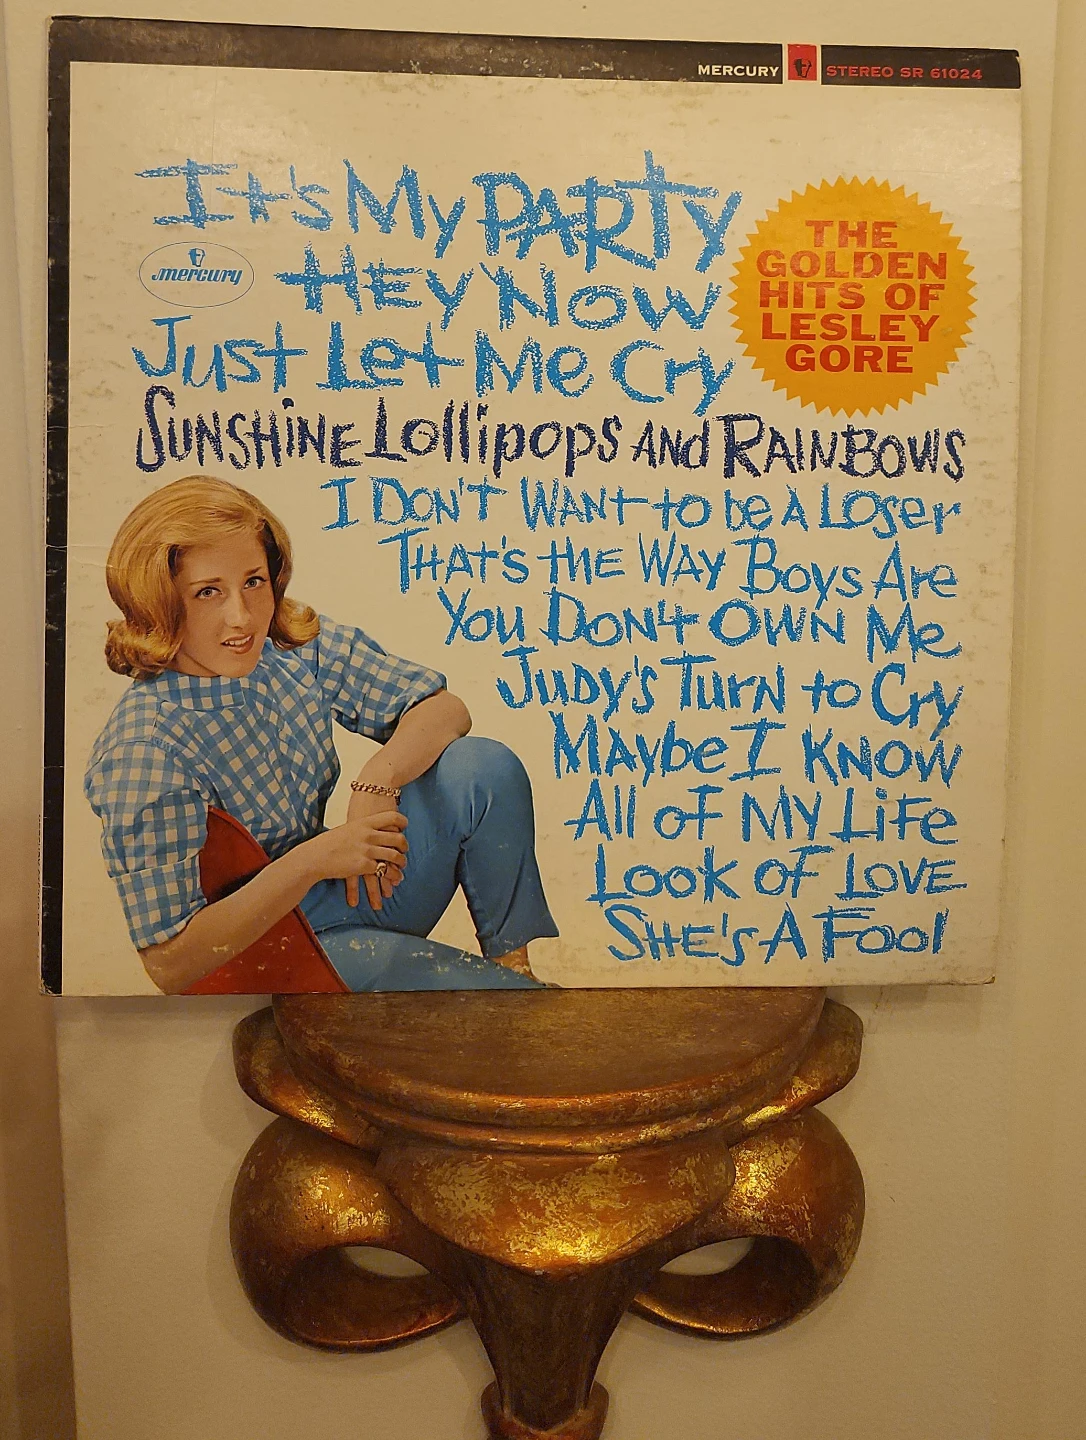 MERCURY STEREO SR 61024
It's My PARTY
mercury
HEY NOW
Just Let Me Cry
THE
GOLDEN
HITS OF
LESLEY
GORE
SUNSHINE LollipopS AND RAINBOWS
I DON'T WANT to be A Loser
THAT'S tHE WAY Boys Are
You DON't OWN Me
JUDY'S TURN to Cry
MAybe I KNOW
All oF MY LiFe
Look OF LOVE
SHE'S A Fool